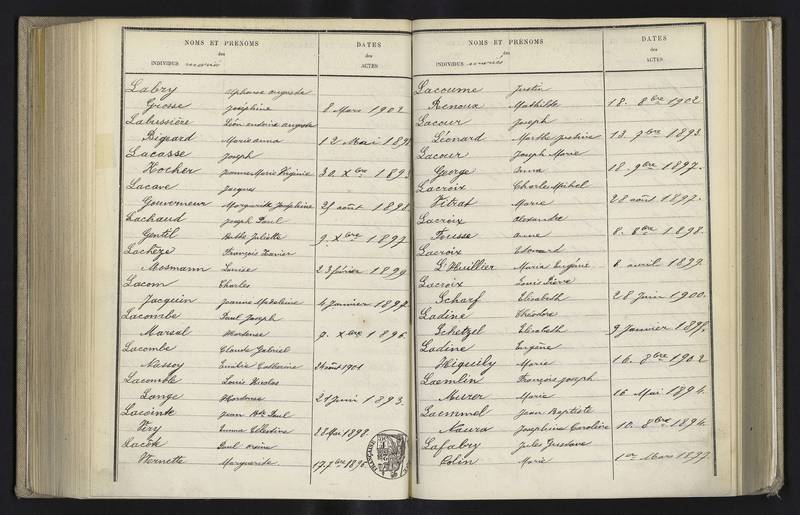 NOMS ET PRÉNOMS
des
INDIVIDUS mariés
DATES
des
ACTES
Labry Alphonse auguste
Grosse Joséphine 8 Mars 1902
Labussière Léon antoine auguste
Bigeard Marie anna 12 Mai 189
Lacasse Joseph
Hocher Jeanne Marie Virginie 30 Xbre 1893
Lacave Jacques
Gouverneur Marguerite Joséphine 25 août 1898
Lachaud Joseph Paul
Gentil Berthe Juliette 9 Xbre 1897
Lachèze François Xavier
Mosmann Louise 23 février 1899
Lacom Charles
Jacquin Jeanne Madeleine 4 Janvier 1892
Lacombe Paul Joseph
Marsal Hortense 9 Xbre 1896
Lacombe Claude Gabriel
Nassoy Emélie Catherine 24 août 1901
Lacombe Louis Nicolas
Lange Hortense 21 Juin 1893.
Lacointe Jean Bte Paul
Véry Emma Célestine 28 Mai 1898
Lacôk Paul
Wernette Marguerite 17. 7bre 1896
FRANÇAISE
NOMS ET PRÉNOMS
des
INDIVIDUS mariés
DATES
des
ACTES
Lacoume Justin
Renoux Mathilde 18. 8bre 1902
Lacour Joseph
Léonard Marthe Justine 13. 7bre 1893
Lacour Joseph Marie
George Anna 18. 9bre 1897.
Lacroix Charles Michel
Vitrat Marie 28 août 1897.
Lacroix Alexandre
Tousse anne 8. 8bre 1898.
Lacroix Edouard
L'Huillier Maria Eugénie 6 avril 1899.
Lacroix Louis
Scharf Elisabeth 28 Juin 1900.
Ladine Théodore
Schetzel Elisabeth 9 Janvier 189
Ladine Eugène
Higuily Marie 16. 8bre 1902
Laemlin François Joseph
Murer Marie 16 Mai 1894.
Laemmel Jean Baptiste
Naura Joséphine Caroline 10. 8bre 1894.
Lafabry Jules Gustave
Colin Marie 1er Mars 1897.